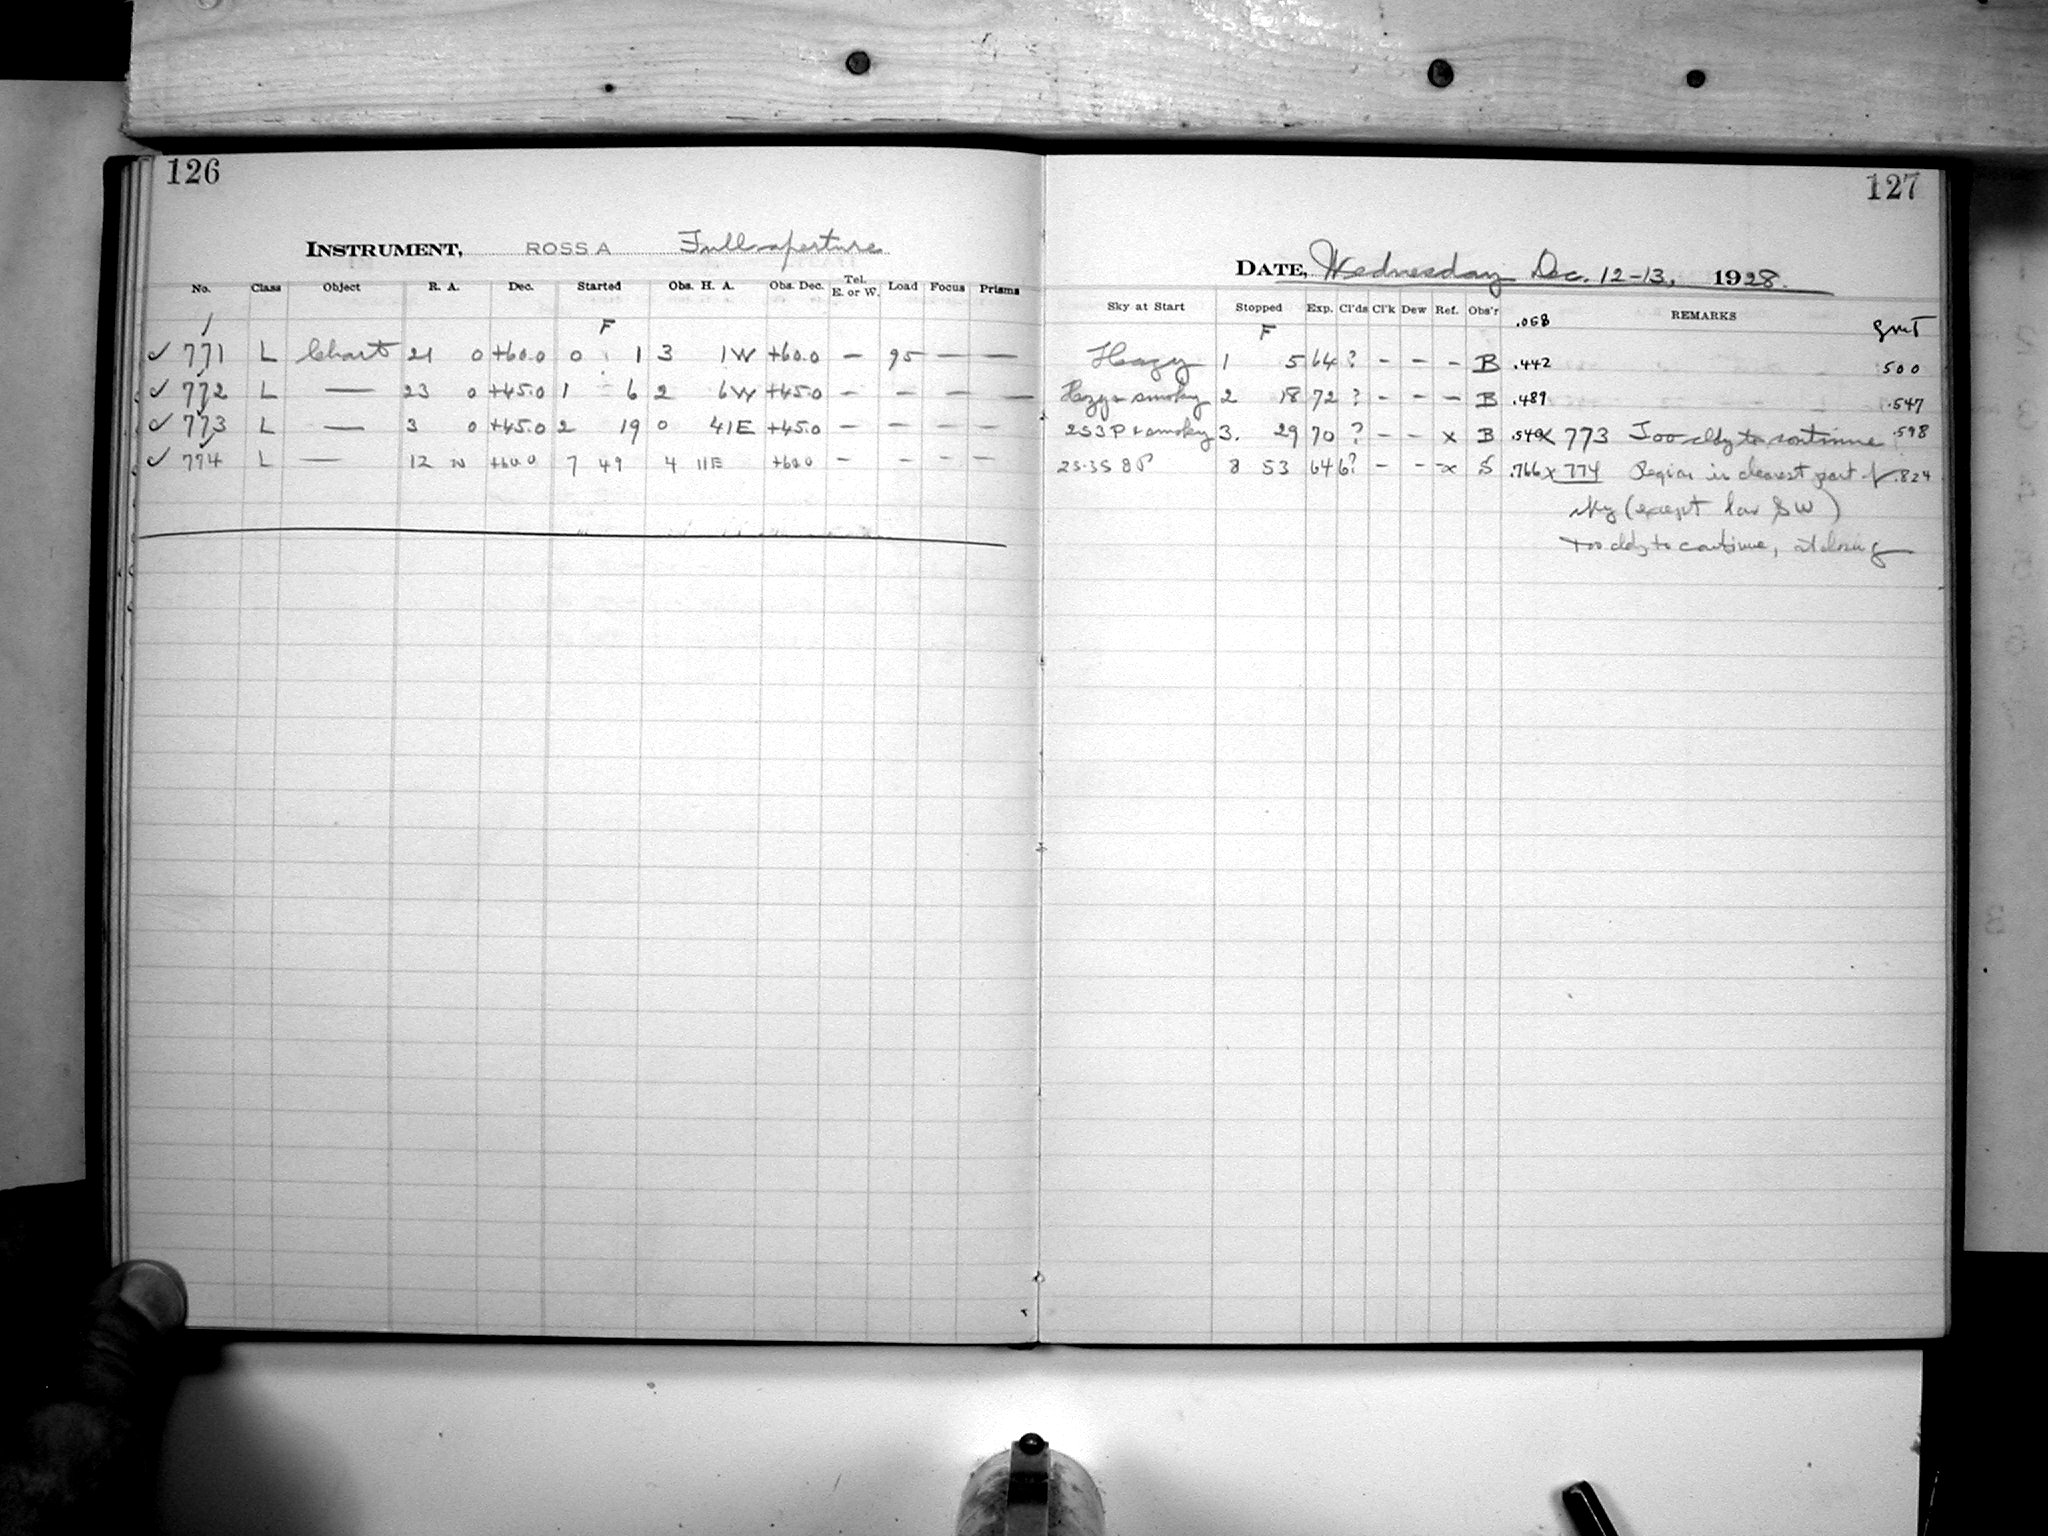 126
INSTRUMENT, ROSS A Full aperture
No. Class Object R. A. Dec. Started Obs. H. A. Obs. Dec. Tel. E. or W. Load Focus Prisms
F
✓ 771 L Chart 21 0 +60.0 0 1 3 1W +60.0 — 95 — —
✓ 772 L — 23 0 +45.0 1 6 2 6W +45.0 — — — —
✓ 773 L — 3 0 +45.0 2 19 0 41E +45.0 — — — —
✓ 774 L — 12 +60.0 7 49 4 11E +60.0 — — — —
127
DATE, Wednesday Dec. 12-13, 1928.
Sky at Start Stopped Exp. Cl'ds Cl'k Dew Ref. Obs'r REMARKS
F .058 GMT
Hazy 1 5 64 ? - - - B .442 500
Hazy + smoky 2 18 72 ? - - - B .489 .547
2S3P + smoky 3. 29 70 ? - - x B x 773 Too cldy to continue .598
2S-3S 8P 8 53 64 6? - - x S .766 x 774 Region is clearest part of .824
sky (except low SW)
too cldy to continue, at closing